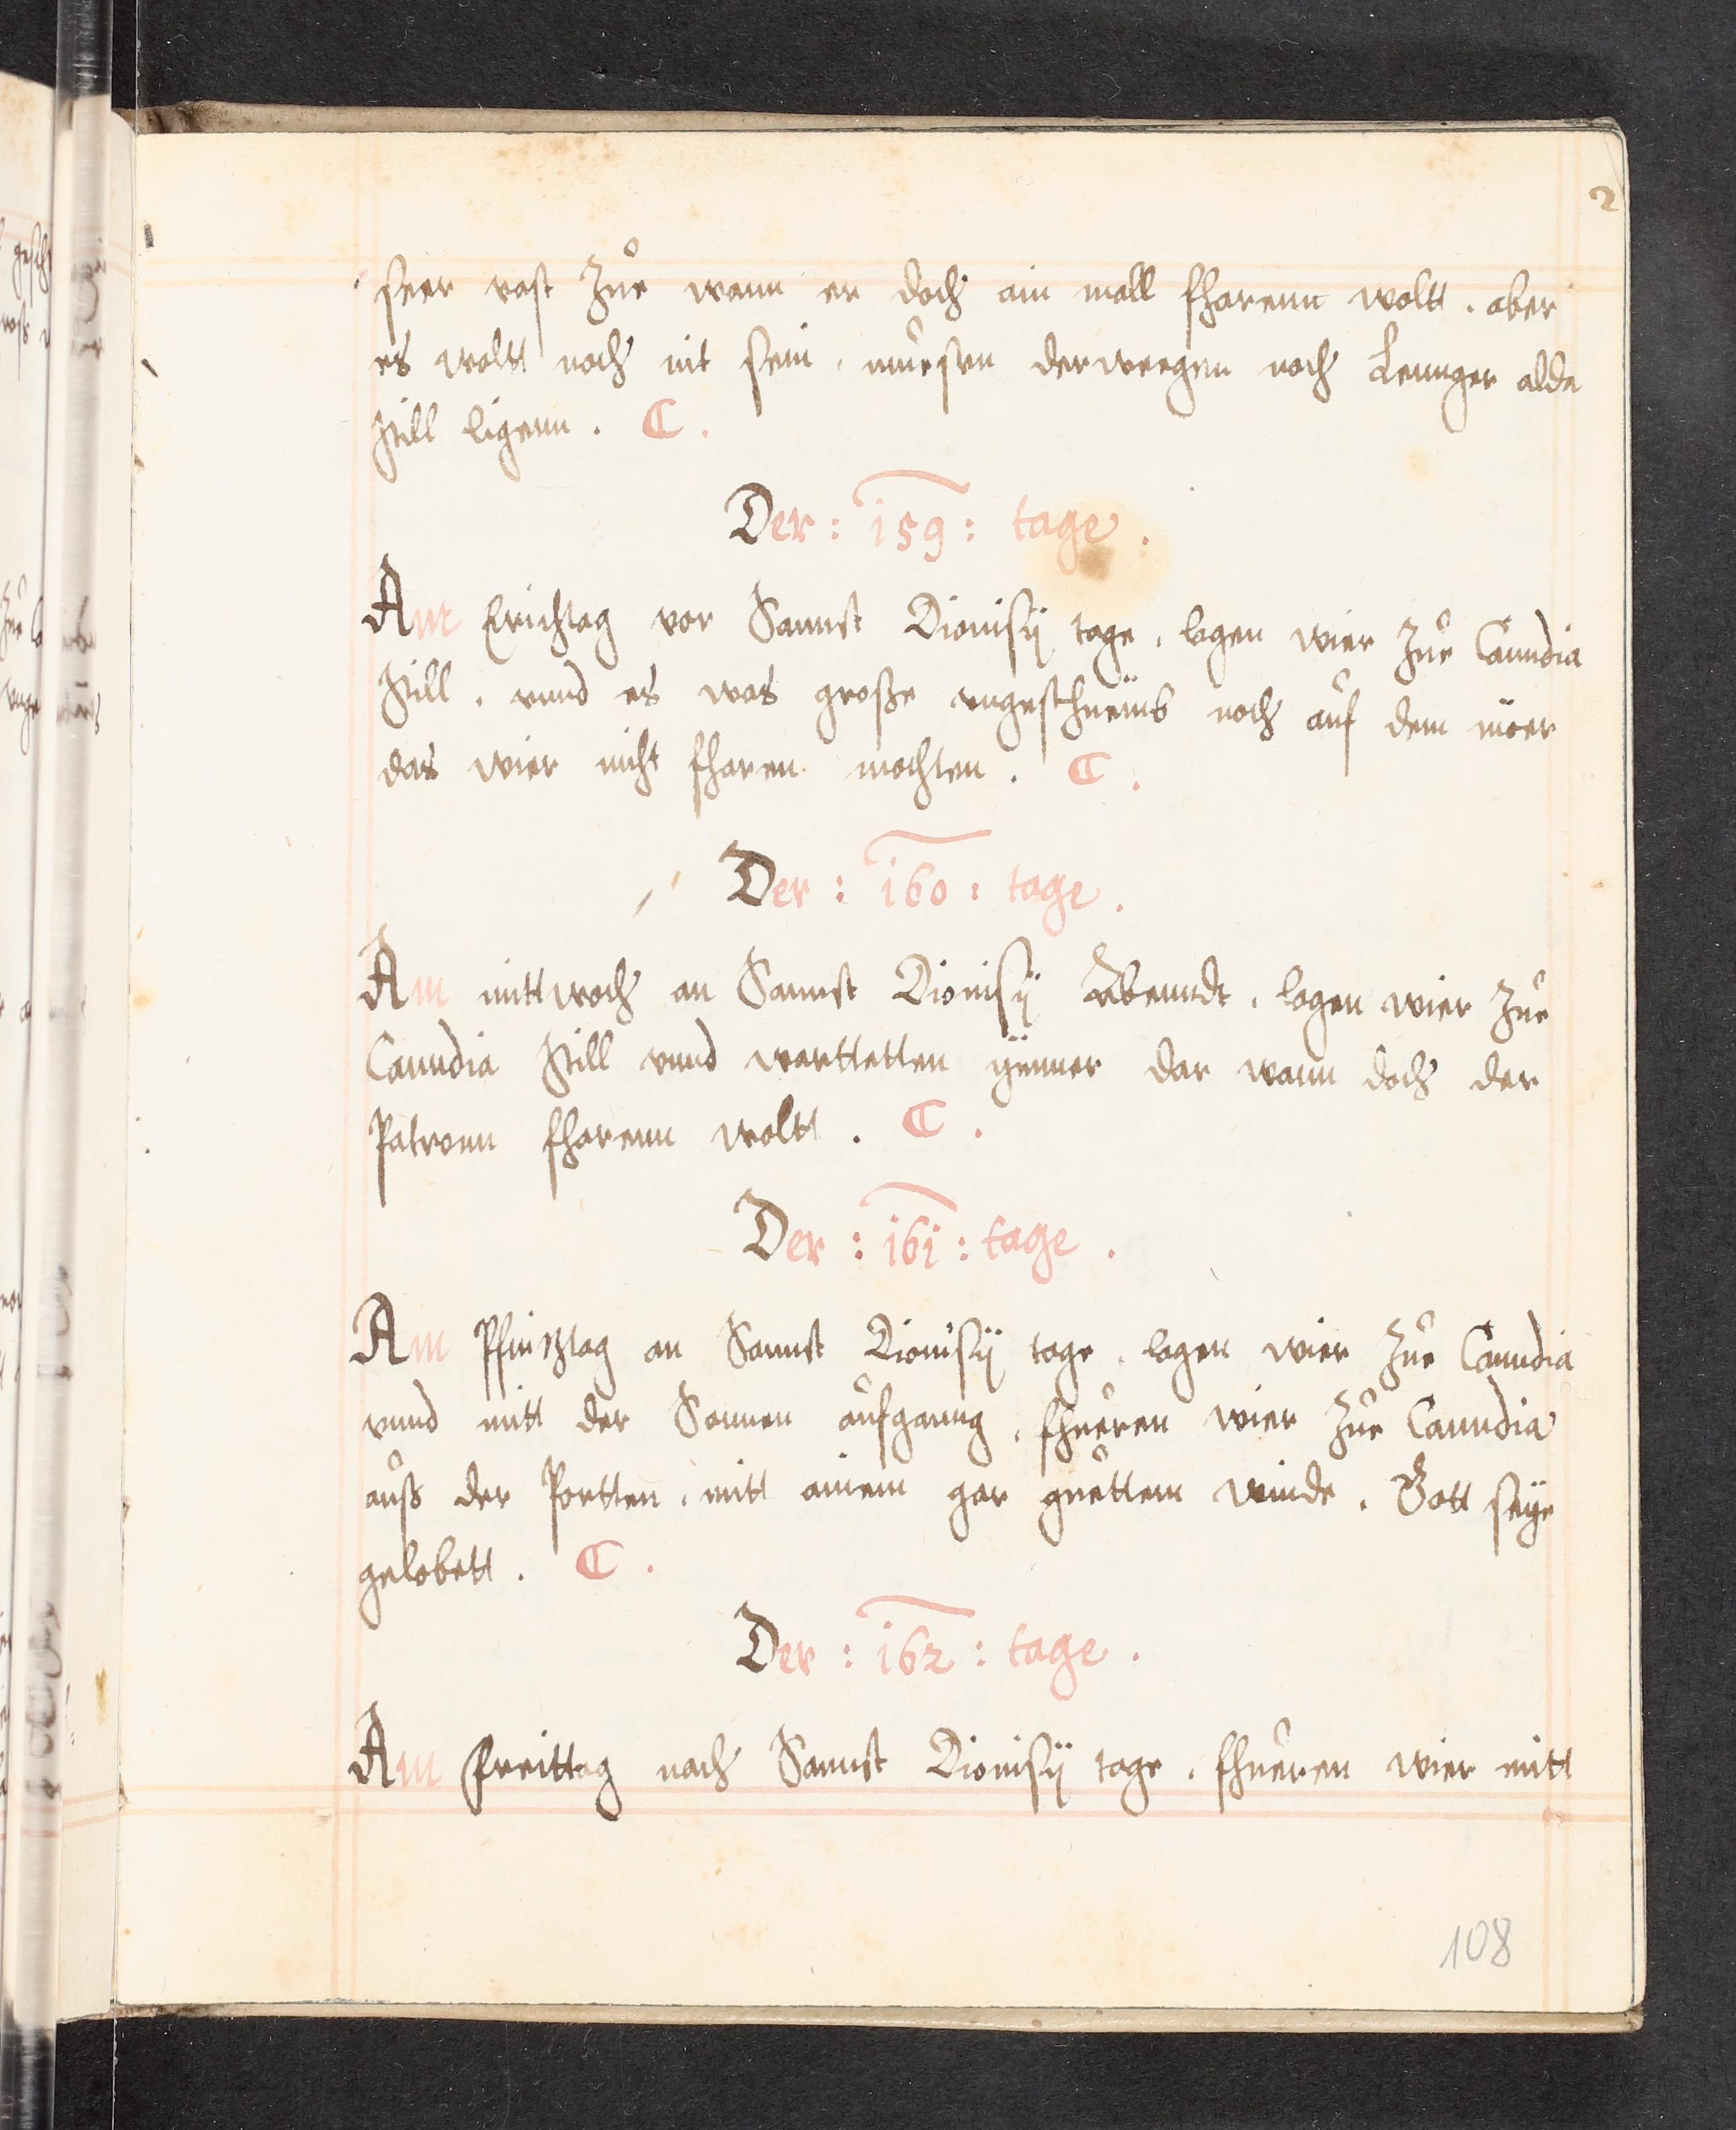 2
seer vast Zue wann er doch ain mall fharenn woltt. aber
es woltt noch nit sein, muesten derweegen noch Lennger alda
still ligenn. C.
Der: 159: tage.
Am Erichtag vor Sannst Dionisÿ tage, lagen wier Zue Canndia
still. vnnd es was große vngesthuemb noch auf dem möer
das wier nicht fharen mochten. C.
Der: 160: tage.
Am mittwoch an Sannst Dionisÿ Abenndt, lagen wier Zue
Canndia still vnnd warttetten ÿmmer dar wann doch der
Patronn fharenn woltt. C.
Der: 161: tage.
Am Pfinztag an Sannst Dionisÿ tage, lagen wier Zue Canndia
vnnd mitt der Sonnen aufganng, fhueren wier Zue Canndia
auß der Portten, mitt ainem gar guettem winde. Gott seÿe
gelobett. C.
Der: 162: tage.
Am Freittag nach Sannst Dionisÿ tage, fhueren wier mitt
108